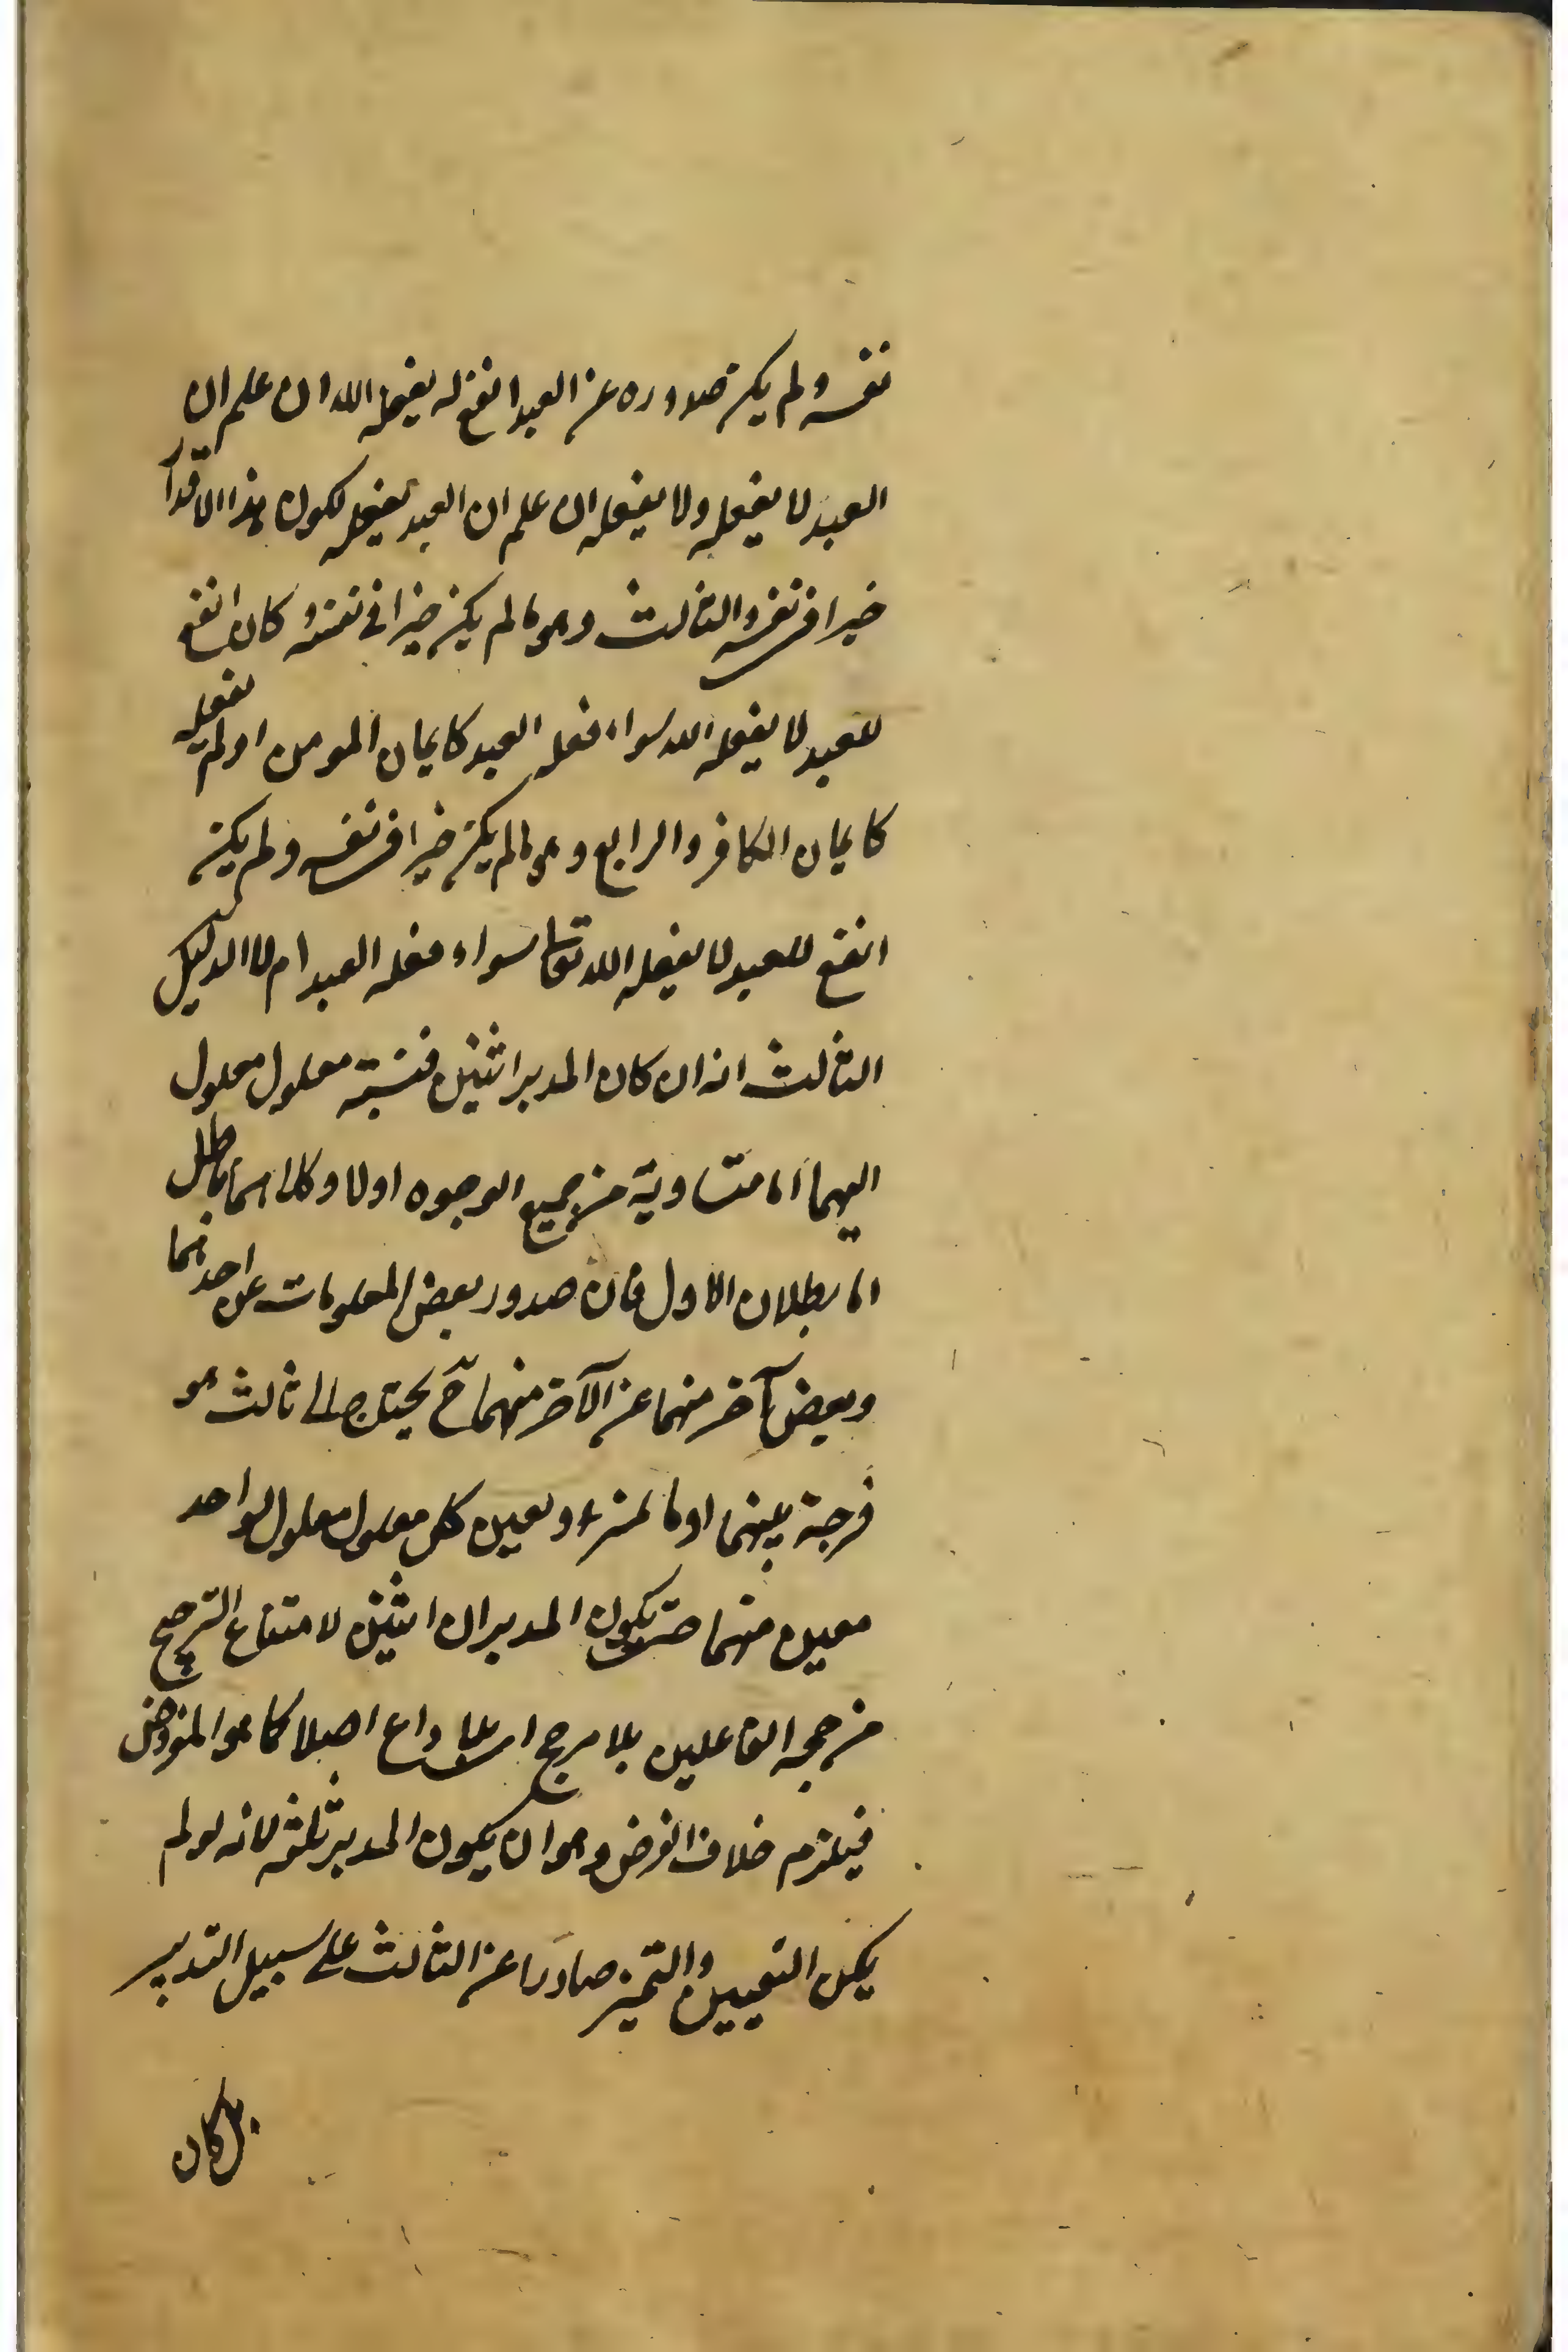 نفسه ولم يكن صدوره عن العبد انفع له يفعله الله ان علم ان
العبد لا يفعله ولا يفعله ان علم ان العبد يفعله لكون هذا الاقدار
خيرا في نفسه والثالث وهو ما لم يكن خيرا في نفسه و كان انفع
للعبد لا يفعله الله سواء فعله العبد كايمان المومن او لم يفعله
كايمان الكافر والرابع وهو ما لم يكن خيرا في نفسه ولم يكن
انفع للعبد لا يفعله الله تعالى سواء فعله العبد ام لا الدليل
الثالث انه ان كان المدبر اثنين فنسبة معلول معلول
اليهما اما متساوية من جميع الوجوه او لا وكلاهما باطل
اما بطلان الاول فان صدور بعض المعلومات عن احدهما
وبعض آخر منهما عن الآخر منهما ح يحتاج الى ثالث هو
فرجة بينهما او ما لمنزء وتعين كل معلول معلول لواحد
معين منهما حتى يكون المدبران اثنين لامتناع الترجيح
من جهة الفاعلين بلا مرجح اى بلا داع اصلا كما هو المفروض
فيلزم خلاف الفرض وهو ان يكون المدبر ثلثة لانه لو لم
يكن التعيين والتميز صادرا عن الثالث على سبيل التدبير
بل كان